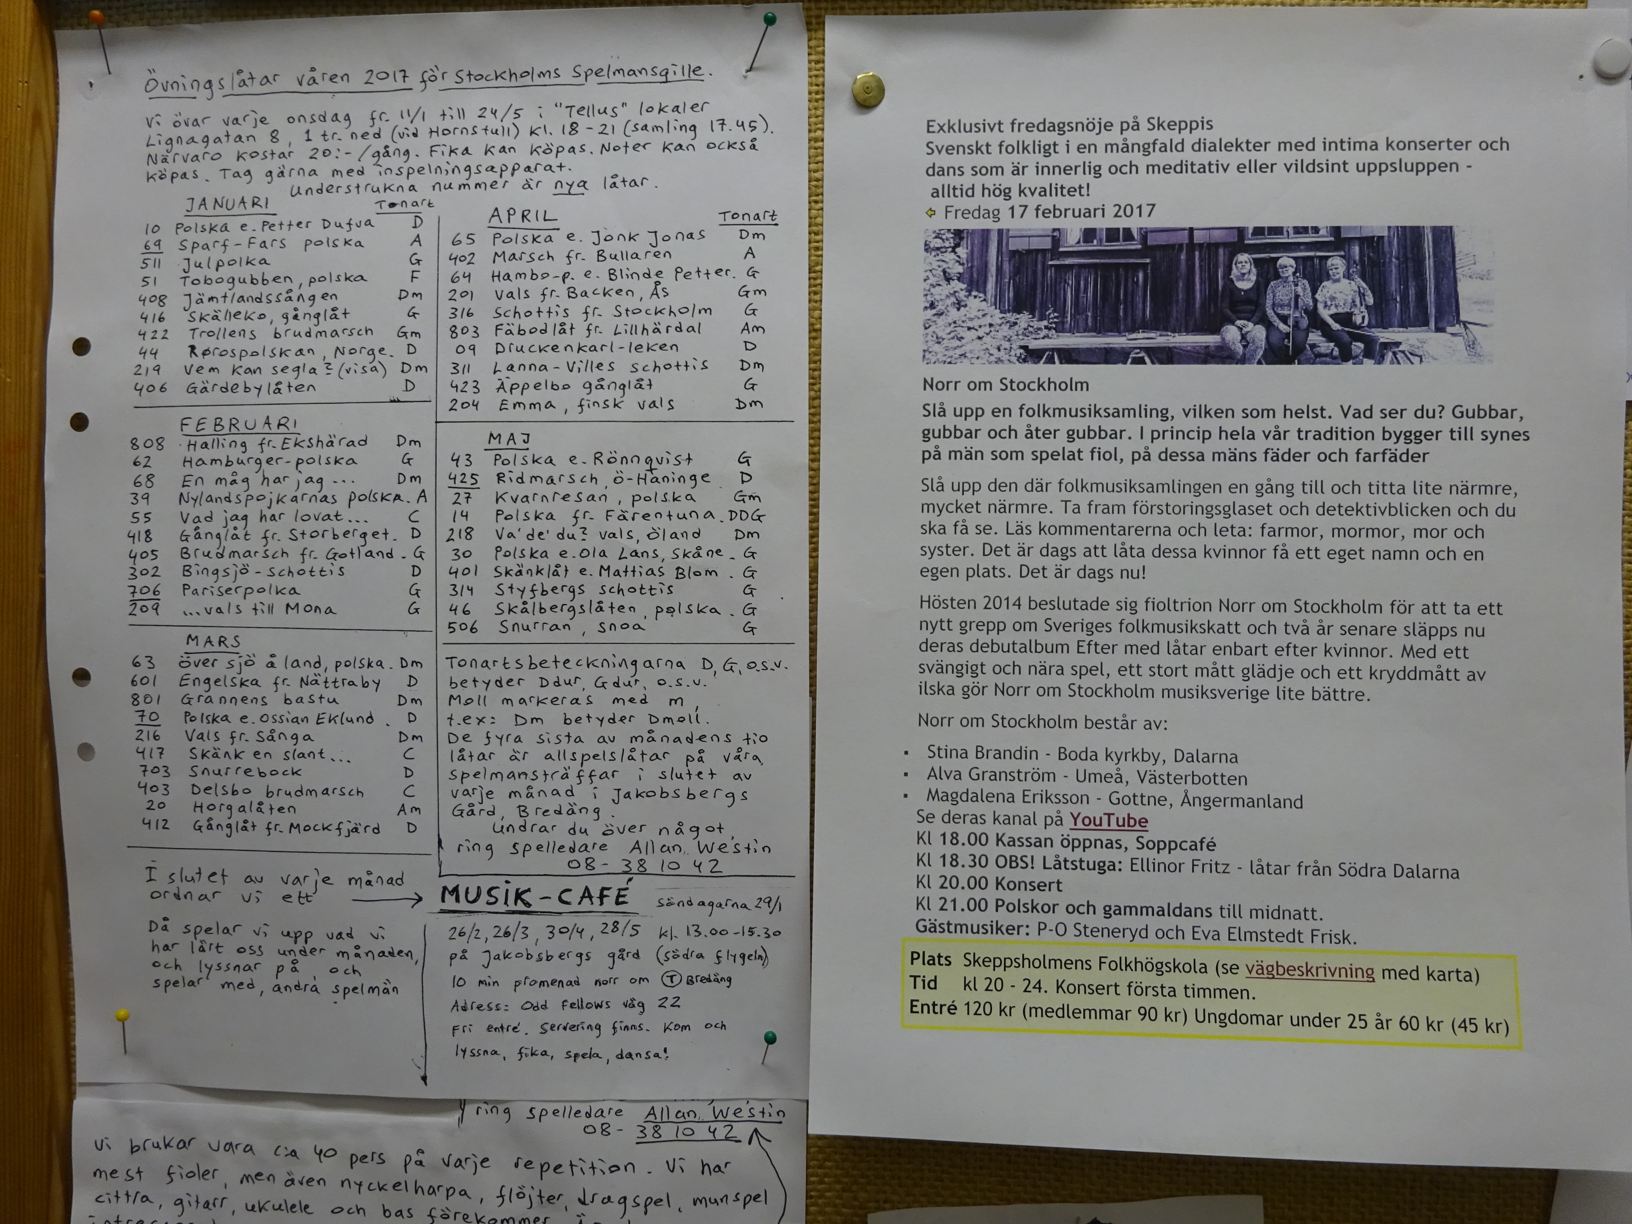 Övningslåtar våren 2017 för Stockholms Spelmansgille.
Vi övar varje onsdag fr. 11/1 till 24/5 i "Tellus" lokaler
Lignagatan 8, 1 tr. ned (vid Hornstull) kl. 18-21 (samling 17.45).
Närvaro kostar 20:-/gång. Fika kan köpas. Noter kan också
köpas. Tag gärna med inspelningsapparat.
Understrukna nummer är nya låtar.
JANUARI Tonart
10 Polska e. Petter Dufva D
69 Sparf-Fars polska A
511 Julpolka G
51 Tobogubben, polska F
408 Jämtlandssången Dm
416 Skäheko, gånglåt G
422 Trollens brudmarsch Gm
44 Rørospolskan, Norge. D
219 Vem kan segla? (visa) Dm
406 Gärdebylåten D
FEBRUARI
808 Halling fr. Ekshärad Dm
62 Hamburger-polska G
68 En måg har jag ... Dm
39 Nylandspojkarnas polska. A
55 Vad jag har lovat... C
418 Gånglåt fr. Storberget. D
405 Brudmarsch fr. Gotland. G
302 Bingsjö-schottis D
706 Pariserpolka G
209 ...vals till Mona G
MARS
63 över sjö å land, polska. Dm
601 Engelska fr. Nättraby D
801 Grannens bastu Dm
70 Polska e. Ossian Eklund. D
216 Vals fr. Sånga Dm
417 Skänk en slant... C
703 Snurrebock D
403 Delsbo brudmarsch C
20 Horgalåten Am
412 Gånglåt fr. Mockfjärd D
APRIL Tonart
65 Polska e. Jonk Jonas Dm
402 Marsch fr. Bullaren A
64 Hambo-p. e. Blinde Petter. G
201 Vals fr. Backen, Ås Gm
316 Schottis fr. Stockholm G
803 Fäbodlåt fr. Lillhärdal Am
09 Druckenkarl-leken D
311 Lanna-Villes schottis Dm
423 Äppelbo gånglåt G
204 Emma, finsk vals Dm
MAJ
43 Polska e. Rönnqvist G
425 Ridmarsch, ö-Haninge D
27 Kvarnresan, polska Gm
14 Polska fr. Färentuna. DDG
218 Va' de' du? vals, öland Dm
30 Polska e. Ola Lans, Skåne. G
401 Skänklåt e. Mattias Blom. G
314 Styfbergs schottis G
46 Skålbergslåten, polska. G
506 Snurran, snoa G
Tonartsbeteckningarna D, G, o.s.v.
betyder Ddur, Gdur, o.s.v.
Moll markeras med m,
t.ex: Dm betyder Dmoll.
De fyra sista av månadens tio
låtar är allspelslåtar på våra
spelmansträffar i slutet av
varje månad i Jakobsbergs
Gård, Bredäng.
Undrar du över något,
ring spelledare Allan Westin
08-38 10 42
I slutet av varje månad
ordnar vi ett
Då spelar vi upp vad vi
har lärt oss under månaden,
och lyssnar på, och
spelar med, andra spelmän
MUSIK-CAFÉ söndagarna 29/1
26/2, 26/3, 30/4, 28/5 kl. 13.00-15.30
på Jakobsbergs gård (södra flygeln)
10 min promenad norr om T Bredäng
Adress: Odd Fellows väg 22
Fri entré. Servering finns. Kom och
lyssna, fika, spela, dansa!
ring spelledare Allan Westin
08-38 10 42
Vi brukar vara c:a 40 pers på varje repetition. Vi har
mest fioler, men även nyckelharpa, flöjter, dragspel, munspel
cittra, gitarr, ukulele och bas förekommer.
Exklusivt fredagsnöje på Skeppis
Svenskt folkligt i en mångfald dialekter med intima konserter och
dans som är innerlig och meditativ eller vildsint uppsluppen -
alltid hög kvalitet!
Fredag 17 februari 2017
Norr om Stockholm
Slå upp en folkmusiksamling, vilken som helst. Vad ser du? Gubbar,
gubbar och åter gubbar. I princip hela vår tradition bygger till synes
på män som spelat fiol, på dessa mäns fäder och farfäder
Slå upp den där folkmusiksamlingen en gång till och titta lite närmre,
mycket närmre. Ta fram förstoringsglaset och detektivblicken och du
ska få se. Läs kommentarerna och leta: farmor, mormor, mor och
syster. Det är dags att låta dessa kvinnor få ett eget namn och en
egen plats. Det är dags nu!
Hösten 2014 beslutade sig fioltrion Norr om Stockholm för att ta ett
nytt grepp om Sveriges folkmusikskatt och två år senare släpps nu
deras debutalbum Efter med låtar enbart efter kvinnor. Med ett
svängigt och nära spel, ett stort mått glädje och ett kryddmått av
ilska gör Norr om Stockholm musiksverige lite bättre.
Norr om Stockholm består av:
▪ Stina Brandin - Boda kyrkby, Dalarna
▪ Alva Granström - Umeå, Västerbotten
▪ Magdalena Eriksson - Gottne, Ångermanland
Se deras kanal på YouTube
Kl 18.00 Kassan öppnas, Soppcafé
Kl 18.30 OBS! Låtstuga: Ellinor Fritz - låtar från Södra Dalarna
Kl 20.00 Konsert
Kl 21.00 Polskor och gammaldans till midnatt.
Gästmusiker: P-O Steneryd och Eva Elmstedt Frisk.
Plats Skeppsholmens Folkhögskola (se vägbeskrivning med karta)
Tid kl 20 - 24. Konsert första timmen.
Entré 120 kr (medlemmar 90 kr) Ungdomar under 25 år 60 kr (45 kr)